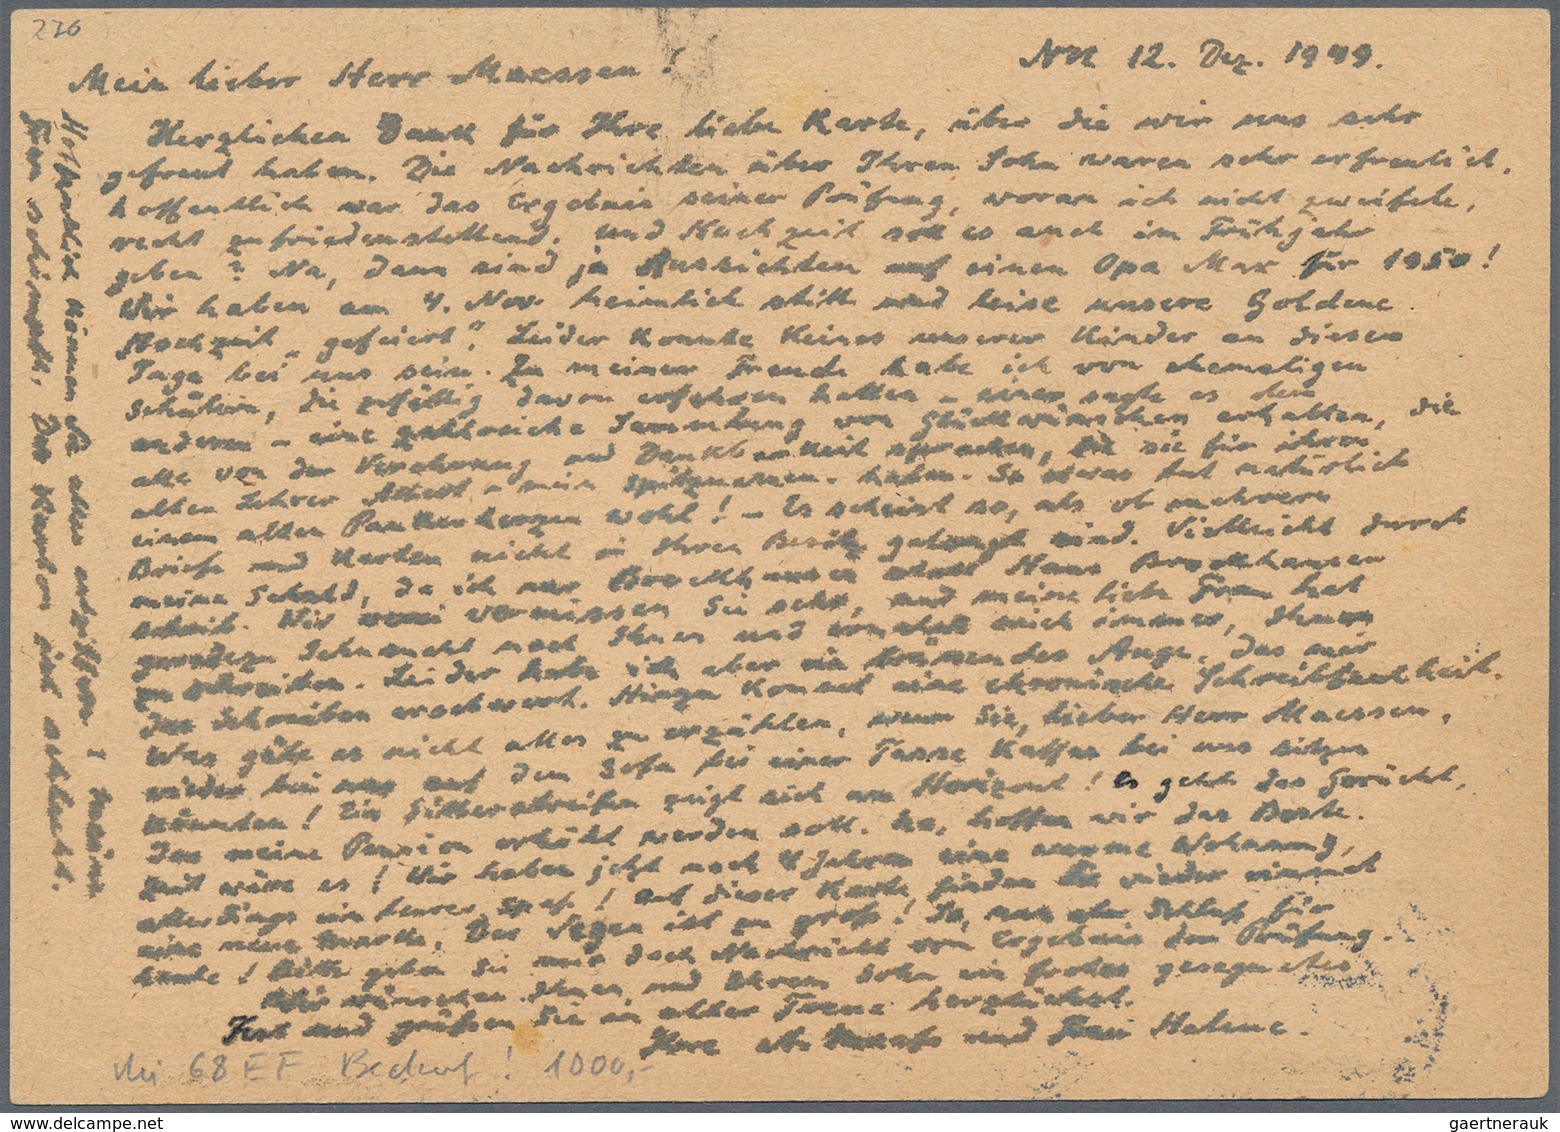 276
12. Dez. 1949.
Mein lieber Herr Maessen!
Herzlichen Dank für Ihre liebe Karte, über die wir uns sehr
gefreut haben. Die Nachrichten über Ihren Sohn waren sehr erfreulich.
Hoffentlich war das Ergebnis seiner Prüfung, woran ich nicht zweifele,
recht zufriedenstellend. Und Hochzeit soll es auch im Frühjahr
geben? Na, dann sind ja Aussichten auf einen Opa Max für 1950!
Wir haben am 4. Nov. heimlich still und leise unsere Goldene
Hochzeit „gefeiert“. Leider konnte keines unserer Kinder an diesem
Tage bei uns sein. Zu meiner Freude habe ich von ehemaligen
Schülern, die zufällig davon erfahren hatten – einer sagte es dem
anderen – eine zahlreiche Sammlung von Glückwünschen erhalten, die
alle von der Verehrung und Dankbarkeit sprachen, die sie für ihren
alten Lehrer – mein Spitznamen – haben. So etwas tut natürlich
einem alten Paukerherzen wohl! – Es scheint so, als ob mehrere
Briefe und Karten nicht in Ihren Besitz gelangt sind. Vielleicht durch
meine Schuld, da ich nur Brockhausen statt Haus Brockhausen
schrieb. Wir zwei vermissen Sie sehr, und meine liebe Frau hat
geradezu Sehnsucht nach Ihnen und ermahnt mich immer, Ihnen
zu schreiben. Leider habe ich aber ein tränendes Auge, das mir
das Schreiben erschwert. Hinzu kommt eine chronische Schreibfaulheit.
Was gäbe es nicht alles zu erzählen, wenn Sie, lieber Herr Maessen,
wieder bei uns auf dem Sofa bei einer Tasse Kaffee bei uns sitzen
könnten! Ein Silberstreifen zeigt sich am Horizont! Es geht das Gerücht,
das meine Pension erhöht werden soll. Na, hoffen wir das Beste.
Zeit wäre es! Wir haben jetzt nach 4 Jahren eine warme Wohnung,
allerdings ein teurer Spaß! Auf dieser Karte finden Sie wieder einmal
eine neue Marke. Der Segen ist zu groß! So, nun aber Schluß für
heute! Bitte geben Sie mir doch Nachricht vom Ergebnis der Prüfung.
Wir wünschen Ihnen und Ihrem Sohn ein frohes gesegnetes
Fest und grüßen Sie in alter Treue herzlichst.
Ihre und Frau Helene.
Hoffentlich können Sie alles entziffern! Meine
Frau schimpft. Der Karton ist schlecht.
Mi 68 EF Bedarf! 1000,-
gaertnerauk @ delcampe.net